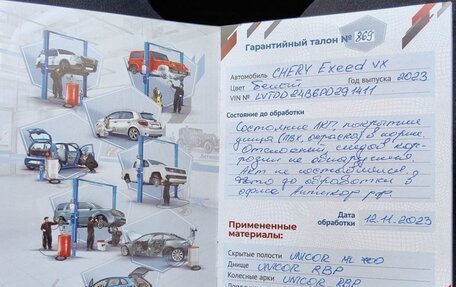 Гарантийный талон № 869
Автомобиль CHERY Exeed VX
Цвет Белый Год выпуска 2023
VIN № LVTDD24B6PD291411
Состояние до обработки
Состояние ЛКП, покрытие
днища (ПВХ, окраска) в норме.
Отслоений, следов кор-
розии не обнаружено.
Акт не составлялся.
Фото до обработки в
офисе Антикор рф.
Дата
обработки 12.11.2023
Применяемые
материалы:
Скрытые полости UNICOR ML
Днище UNICOR RBP
Колесные арки UNICOR RBP